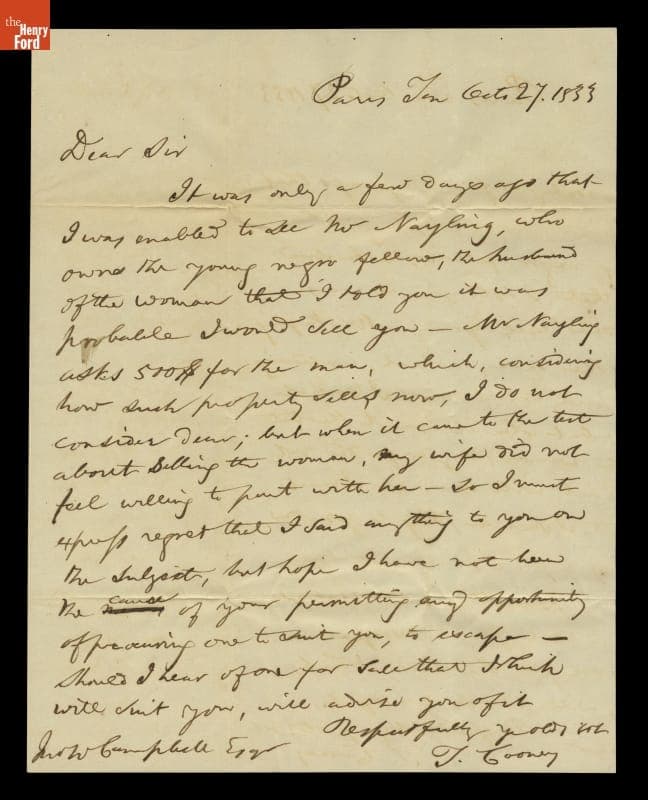 the
Henry
Ford
Paris Ten Octo 27. 1833
Dear Sir
It was only a few days ago that
I was enabled to see Mr Nayling, who
owns the young negro fellow, the husband
of the woman that I told you it was
probable I would sell you – Mr Nayling
asks 500$ for the man, which, considering
how such property sells now, I do not
consider dear; but when it came to the test
about selling the woman, my wife did not
feel willing to part with her – so I must
express regret that I said anything to you on
the subject, but hope I have not been
the cause of your permitting any opportunity
of procuring one to suit you, to escape –
should I hear of one for sale that I think
will suit you, will advise you of it
Respectfully yr obdt svt
Jno W Campbell Esqr
T. Cooney